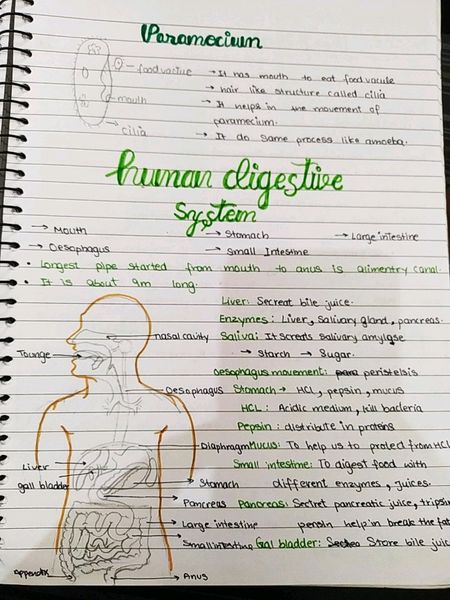 Paramecium
food vacule
mouth
cilia
→ It has mouth to eat food vacule
→ hair like structure called cilia
→ It helps in the movement of
paramecium.
→ It do same process like amoeba.
human digestive
system
→ Mouth → Stomach → Large intestine
→ Oesophagus → Small Intestine
• Longest pipe started from mouth to anus is alimentry canal.
• It is about 9m long.
Liver: Secreat bile juice.
Enzymes: Liver, Salivary gland, pancreas.
Saliva: It screts salivary amylgse
→ Starch → Sugar.
Oesophagus movement: peristelsis
Stomach → HCL, pepsin, mucus
HCL: Acidic medium, kill bacteria
Pepsin: distribute in proteins
Mucus: To help us to protect from HCL
Small intestine: To digest food with
different enzymes, juices.
Pancreas: Sectret pancreatic juice, tripsin
help in break the fat
Gal bladder: Store bile juic
nasal cavity
Tounge
Oesophagus
Diaphragm
Liver
gall bladder
Stomach
Pancreas
Large intestine
Small intestine
Appendix
Anus